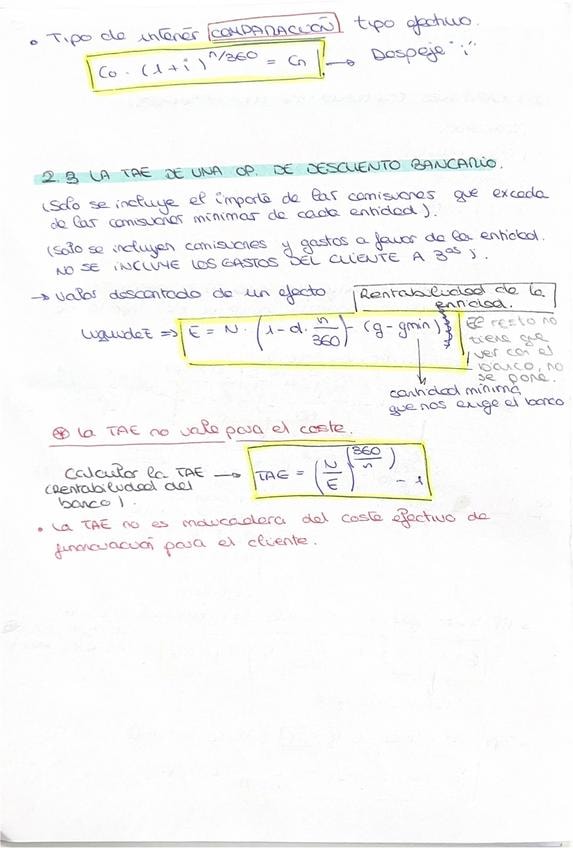 • Tipo de interés COMPARACIÓN tipo efectivo.
Co · (1+i)^n/360 = Cn → Despeje "i"
2.3 LA TAE DE UNA OP. DE DESCUENTO BANCARIO.
(Solo se incluye el importe de las comisiones que exceda
de las comisiones mínimas de cada entidad).
(Solo se incluyen comisiones y gastos a favor de la entidad.
NO SE INCLUYE LOS GASTOS DEL CLIENTE A 3ᵒˢ).
→ Valor descontado de un efecto
Rentabilidad de la
entidad.
LíquidoE ⇒ E = N · (1 - d · n/360) - (g - gmin)
El resto no
tiene que
ver con el
banco, no
se pone.
cantidad mínima
que nos exige el banco
⊛ La TAE no vale para el coste.
Calcular la TAE → TAE = (N/E)^(360/n) - 1
(Rentabilidad del
banco).
• La TAE no es indicadora del coste efectivo de
financiación para el cliente.